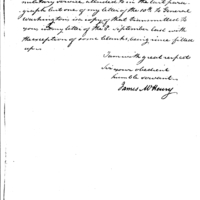 military service, attended to in the last para-
graph but one of my letter of the 10th to General
Washington is a copy of that transmitted to
you in my letter of the 8. September last with
the exception of some blanks, being since filled
up.
I am with great respect
Sir your obedient
humble servant
James McHenry